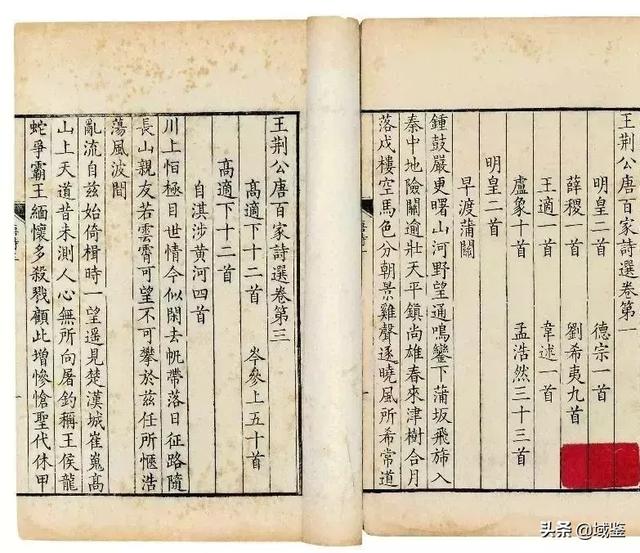 王荆公唐百家詩選卷第一
明皇二首 德宗一首
薛稷一首 劉希夷九首
王適一首 韋述一首
盧象十首 孟浩然三十三首
明皇二首
早渡蒲關
鍾鼓嚴更曙山河野望通鳴鑾下蒲坂飛旆入
秦中地險關逾壯天平鎮尚雄春來津樹合月
落戍樓空馬色分朝景雞聲逐曉風所希常道
王荆公唐百家詩選卷第三
高適下十二首 岑參上五十首
高適下十二首
自淇涉黃河四首
川上恒極目世情今似閑去帆帶落日征路隨
長山親友若雲霄可望不可攀於茲任所愜浩
蕩風波間
亂流自茲始倚楫時一望遥見楚漢城崔嵬高
山上天道昔未測人心無所向屠釣稱王侯龍
蛇爭霸王緬懷多殺戮顧此增慘愴聖代休甲
头条 @域鉴